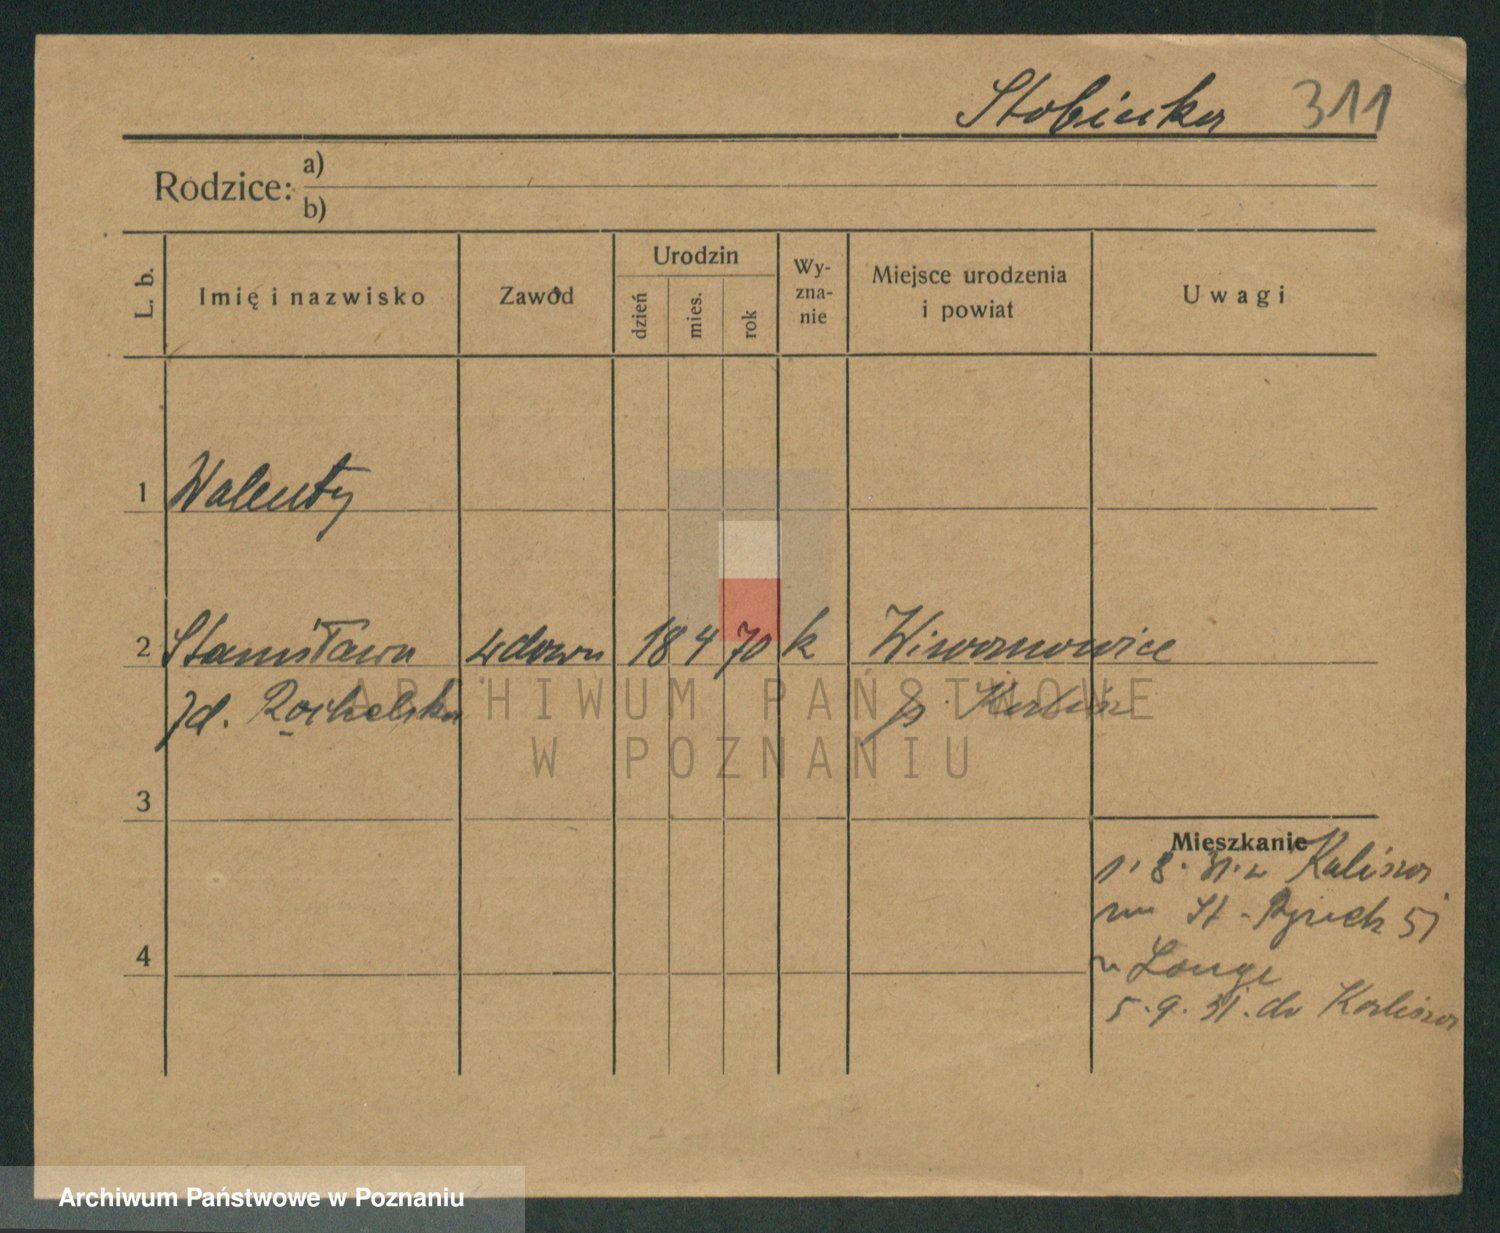 Stobiecka 311
Rodzice: a)
b)
L. b. Imię i nazwisko Zawód Urodzin dzień mies. rok Wy-zna-nie Miejsce urodzenia i powiat Uwagi
1 Walenty
2 Stanisława wdowa 18 4 70 k Iwanowice
p. Kalisz
3
Mieszkanie
1. 8. 31. z Kalisza
St. Rynek 51
5. 9. 31. do Kalisza
4
ARCHIWUM PAŃSTWOWE
W POZNANIU
Archiwum Państwowe w Poznaniu